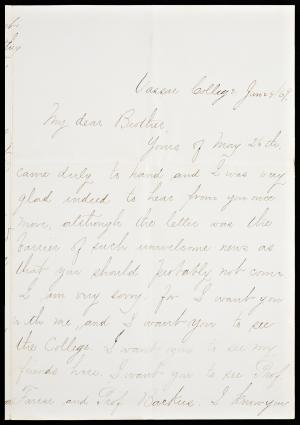 Vassar College June 4/69.
My dear Brother
Yours of May 26th.
came duly to hand and I was very
glad indeed to hear from you once
more, although the letter was the
barrier of such unwelcome news as
that you should probably not come
I am very sorry for I want you
with me, and I want you to see
the College. I want you to see my
friends here. I want you to see Prof.
Farrar and Prof Backus. I know you